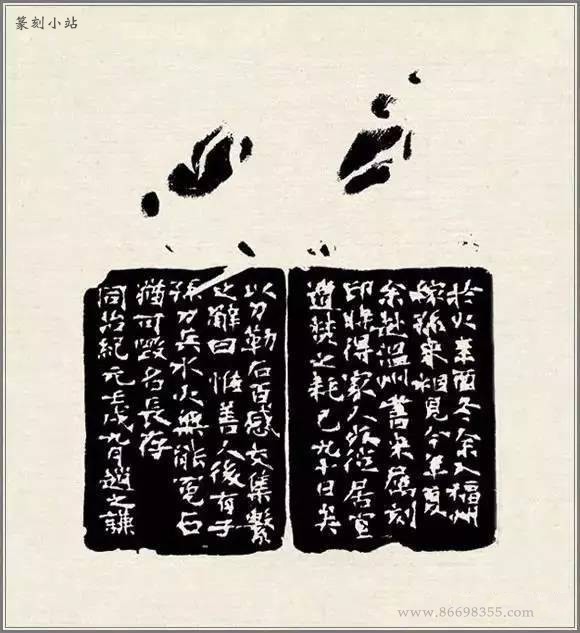 篆刻小站
於火辛酉冬余入福州
稼孫來相見今年夏
余赴溫州書來屬刻
印時得家人死徙居室
遭焚之耗已九十日矣
以刀勒石百感交集繫
之辭曰惟善人後有子
孫刀兵水火無能冤石
猶可毀者長存
同治紀元壬戌九月趙之謙
www.86698355.com